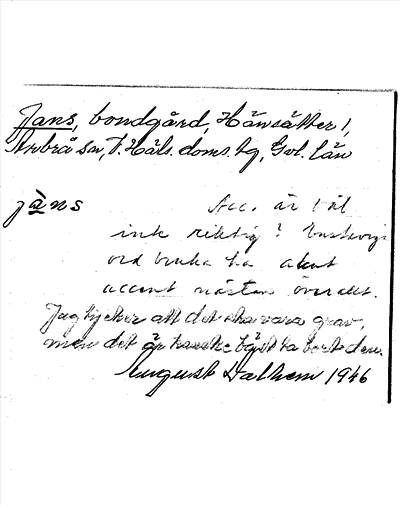 Jans, bondgård, Hänsätter 1,
Arbrå sn, V. Häls. doms. hg, Gvl. län
jàns Acc. är väl
inte riktig? Enstavigt
ord bruka ha akut
accent nästan överallt.
Jag tycker att det ska vara grav,
men det är kanske bäst ta bort den.
August Dalhem 1946